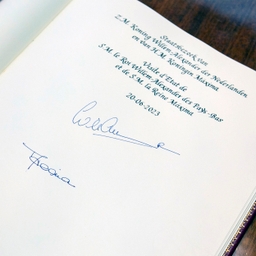 Staatsbezoek van
Z.M. Koning Willem-Alexander der Nederlanden
en van H.M. Koningin Máxima
Visite d'Etat de
S.M. le Roi Willem-Alexander des Pays-Bas
et de S.M. la Reine Máxima
20-06-2023